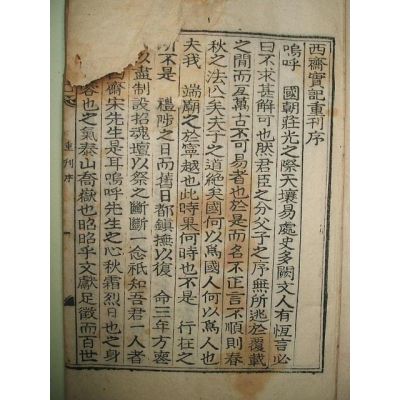 西齋實記重刊序
嗚呼 國朝莊光之際天壤易處史多闕文人有恒言必
曰不求甚解可也然君臣之分父子之序無所逃於覆載
之間而亙萬古不可易者也於是而名不正言不順則春
秋之法八矣夫子之道絶矣國何以爲國人何以爲人也
夫我 端廟之於寧越也此時果何時也不是 行在之
所不是 禮陟之日而舊日都鎮撫以復 命三年方喪
以盡制設招魂壇以祭之斷斷一念祗知吾君一人者
西齋宋先生是耳嗚呼先生之心秋霜烈日也之身
容也之氣泰山喬嶽也昭昭乎文獻足徵而百世
重刊序